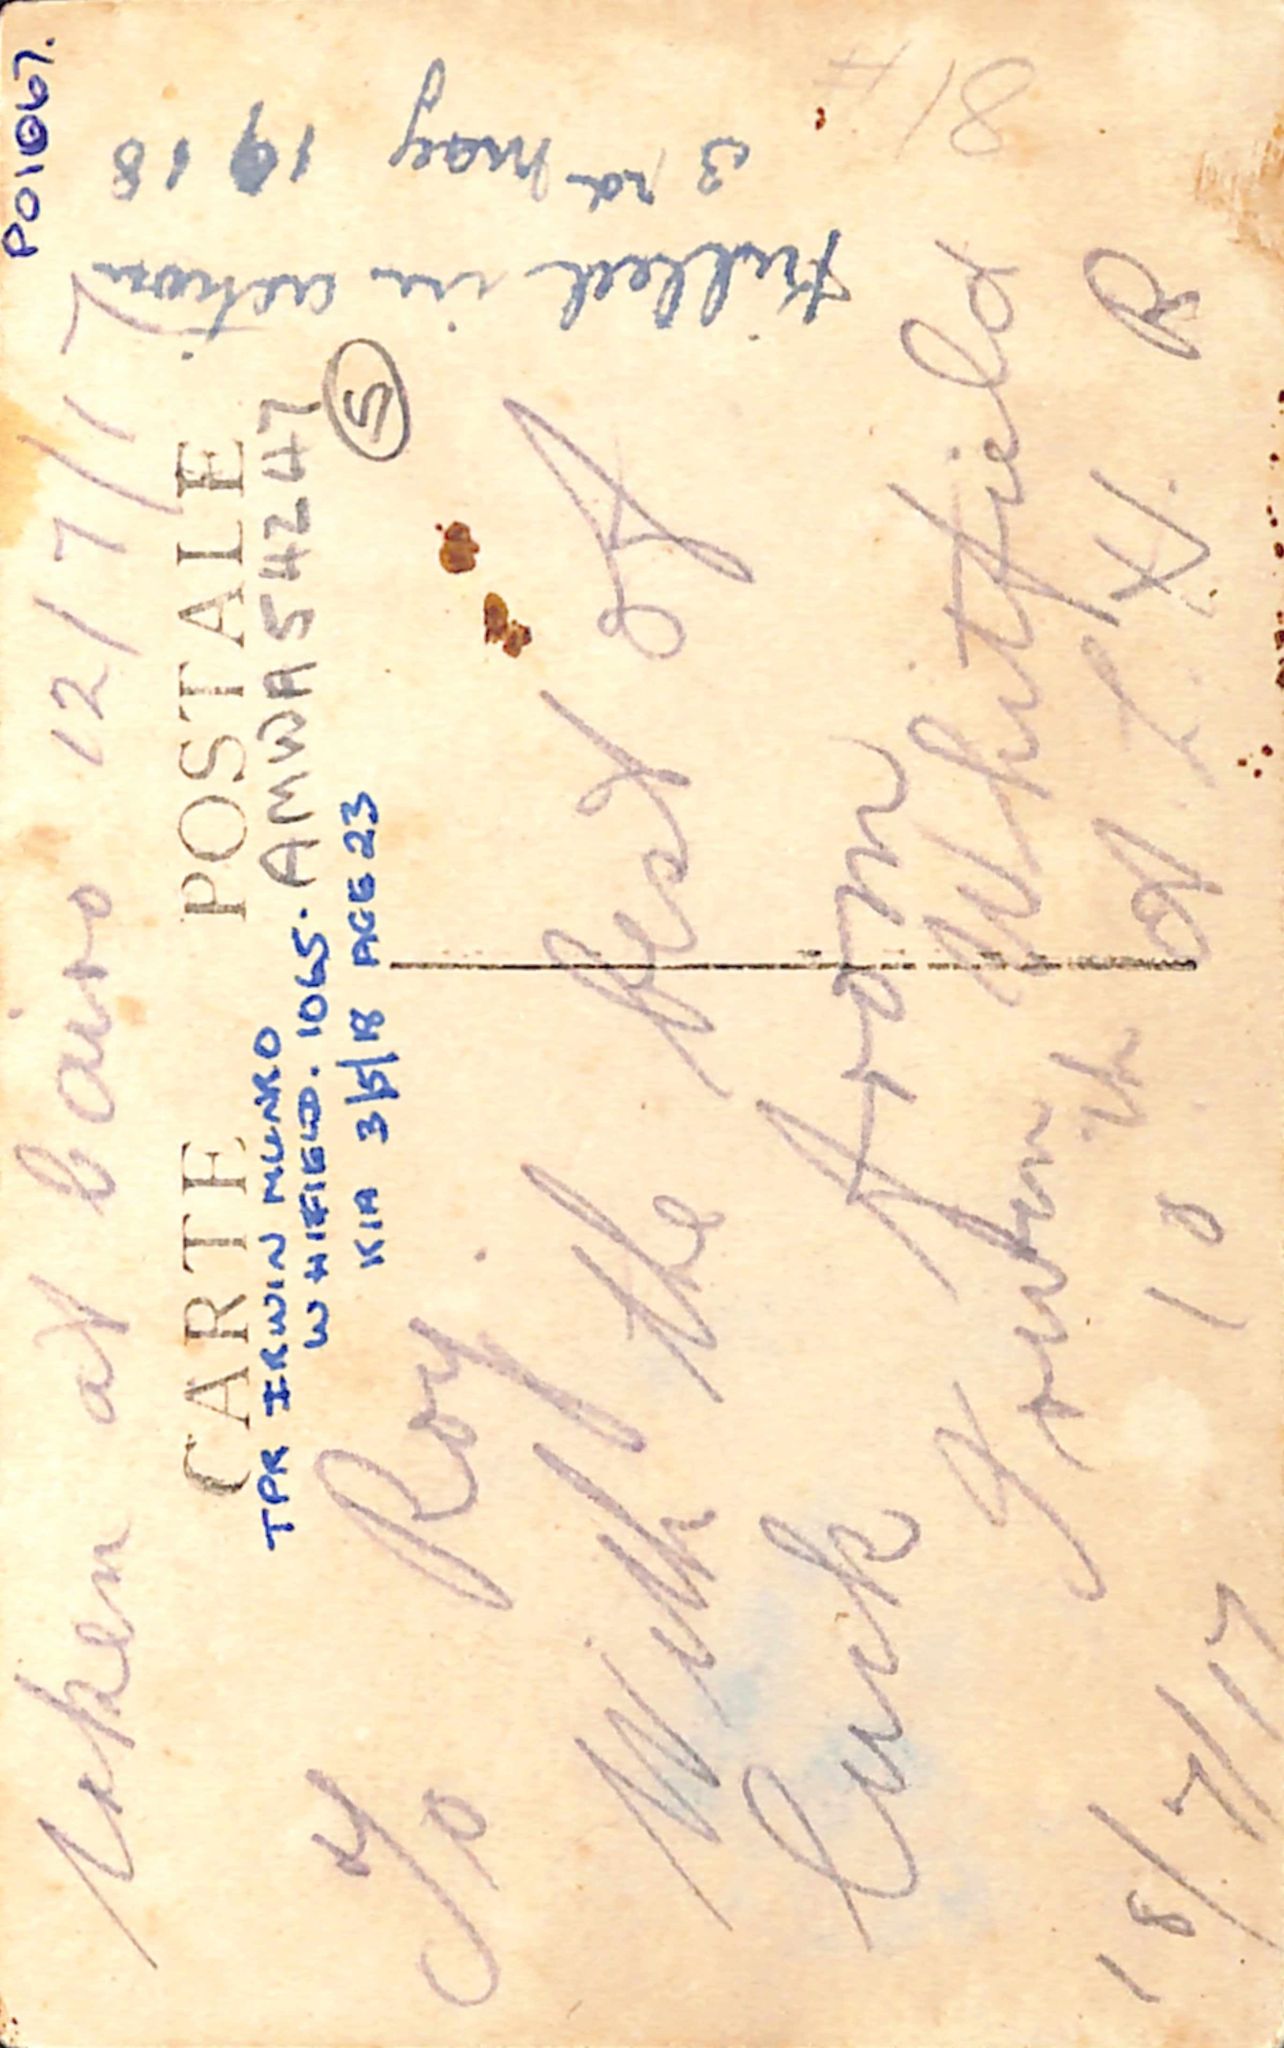 P01067.
Taken at Cairo 12/7/17
CARTE POSTALE
TPR IRWIN MUNRO
WHIFIELD. 1065. AMWA54247
KIA 3/5/18 AGE 23
5
Killed in action
3rd May 1918
To Roy
With the best of
luck from
Irwin Whitfield
10th A L.H. R
18/7/17